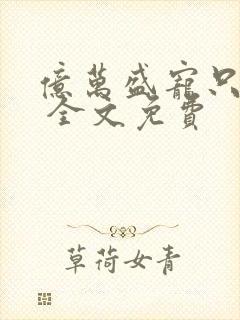 億萬盛寵只
全文免費
草荷女青